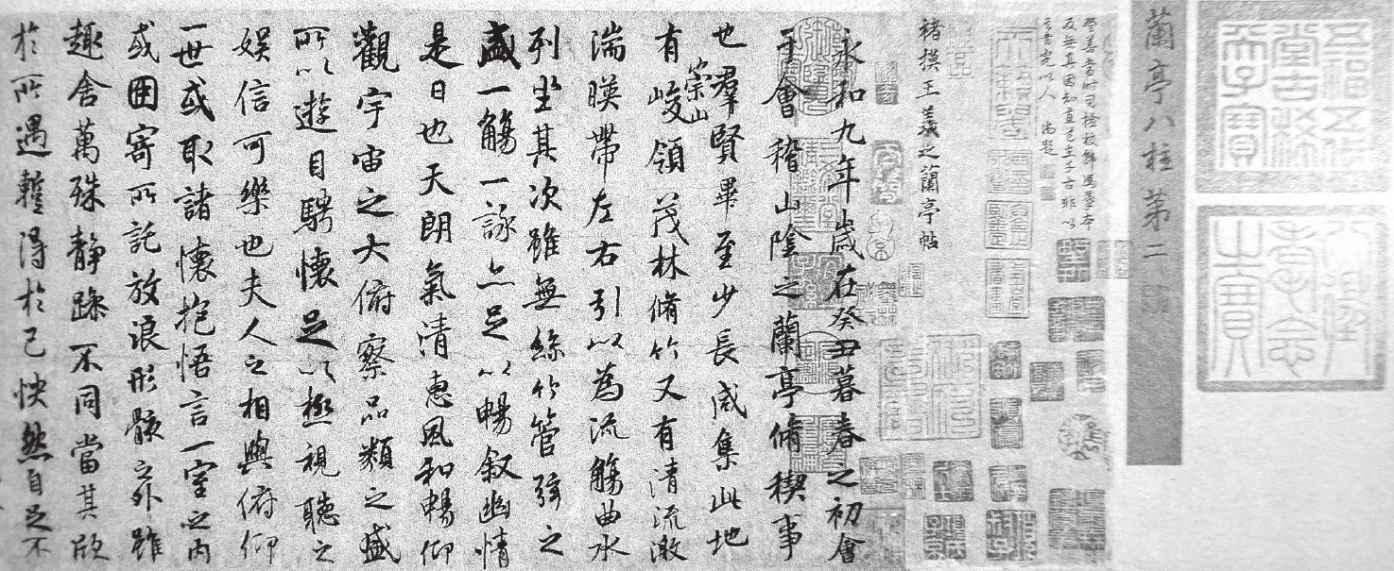 五福五代
堂古稀
天子寶
八徵
耄念
之寶
蘭亭八柱第二
褚摸王羲之蘭亭帖
永和九年歲在癸丑暮春之初會
于會稽山陰之蘭亭脩稧事
也羣賢畢至少長咸集此地
有崇山峻領茂林脩竹又有清流激
湍暎帶左右引以為流觴曲水
列坐其次雖無絲竹管弦之
盛一觴一詠亦足以暢叙幽情
是日也天朗氣清惠風和暢仰
觀宇宙之大俯察品類之盛
所以遊目騁懷足以極視聽之
娛信可樂也夫人之相與俯仰
一世或取諸懷抱悟言一室之內
或因寄所託放浪形骸之外雖
趣舍萬殊靜躁不同當其欣
於所遇蹔得於己怏然自足不